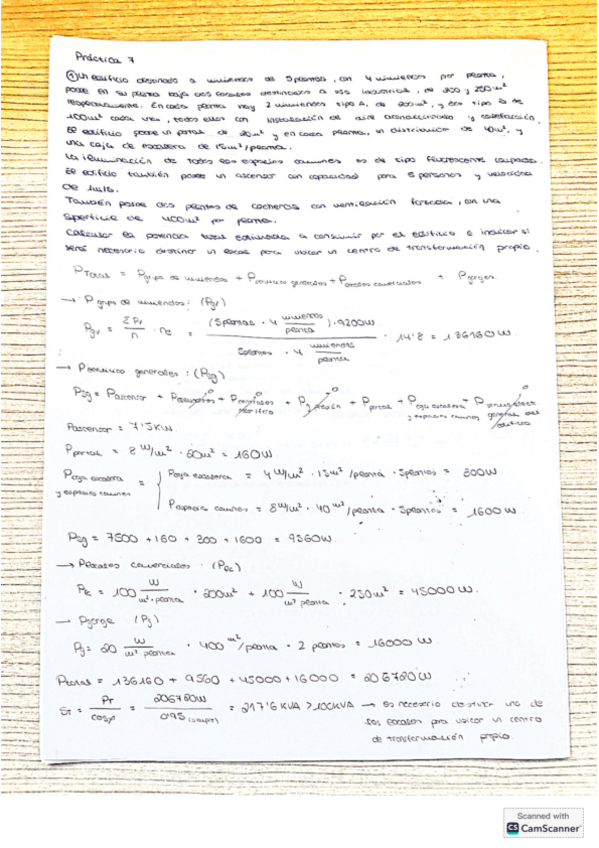 Práctica 7
① Un edificio destinado a viviendas de 5 plantas, con 4 viviendas por planta,
posee en su planta baja dos locales destinados a uso industrial, de 200 y 250 m²
respectivamente. En cada planta hay 2 viviendas tipo A, de 200m², y dos tipo B de
100m² cada una, todas ellas con instalación de aire acondicionado y calefacción.
El edificio posee un portal de 20m² y en cada planta, un distribuidor de 40m², y
una caja de escalera de 15m²/planta.
La iluminación de todos los espacios comunes es de tipo fluorescente compacta.
El edificio también posee un ascensor con capacidad para 5 personas y velocidad
de 1m/s.
También posee dos plantas de cocheras con ventilación forzada, con una
superficie de 400m² por planta.
Calcular la potencia total estimada a consumir por el edificio e indicar si
será necesario destinar un local para ubicar un centro de transformación propio.
P Total = P grupo de viviendas + P servicios generales + P locales comerciales + P garajes
→ P grupo de viviendas: (Pgv)
Pgv = ΣPv / n · ns = (5 plantas · 4 viviendas/planta) · 9200W / 5 plantas · 4 viviendas/planta · 14'8 = 136160W
→ P servicios generales: (Psg)
Psg = P ascensor + + + P portal + P caja escalera y espacios comunes +
P ascensor = 7'5KW.
P portal = 8 W/m² · 20m² = 160W
P caja escalera y espacios comunes = { P caja escalera = 4 W/m² · 15m²/planta · 5 plantas = 300W
P espacios comunes = 8 W/m² · 40 m²/planta · 5 plantas = 1600W
Psg = 7500 + 160 + 300 + 1600 = 9560W
→ P locales comerciales: (Plc)
Plc = 100 W/m²·planta · 200m² + 100 W/m² planta · 250m² = 45000W.
→ P garaje (Pg)
Pg = 20 W/m² planta · 400 m²/planta · 2 plantas = 16000W
P total = 136160 + 9560 + 45000 + 16000 = 206720W
ST = PT / cosφ = 206720W / 0'95 = 217'6 KVA > 100KVA → Es necesario destinar uno de
los locales para ubicar un centro
de transformación propio.
Scanned with
CS CamScanner